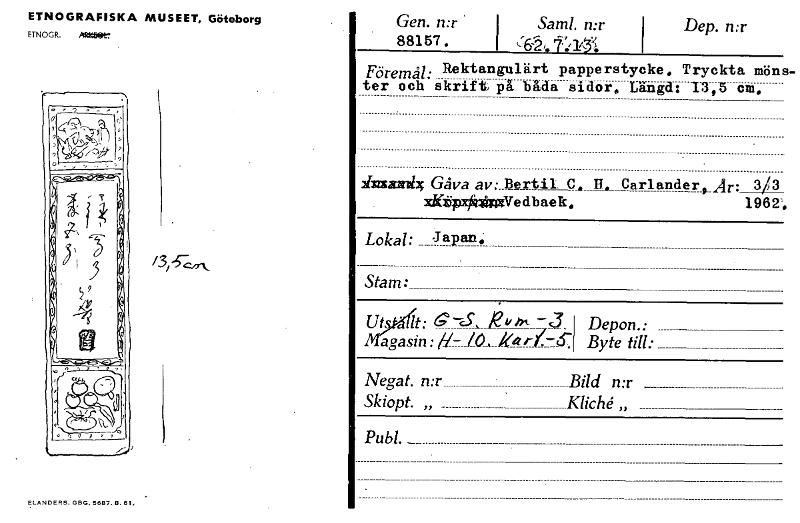 ETNOGRAFISKA MUSEET, Göteborg
ETNOGR.
13,5 cm
ELANDERS. GBG. 5687. B. 61.
Gen. n:r Saml. n:r Dep. n:r
88157. 62.7.13.
Föremål: Rektangulärt papperstycke. Tryckta möns-
ter och skrift på båda sidor. Längd: 13,5 cm.
Gåva av: Bertil C. H. Carlander, År: 3/3
Vedbaek. 1962.
Lokal: Japan.
Stam:
Utställt: G-S. Rum-3 Depon.:
Magasin: H-10. Kart.-5. Byte till:
Negat. n:r Bild n:r
Skiopt. „ Kliché „
Publ.